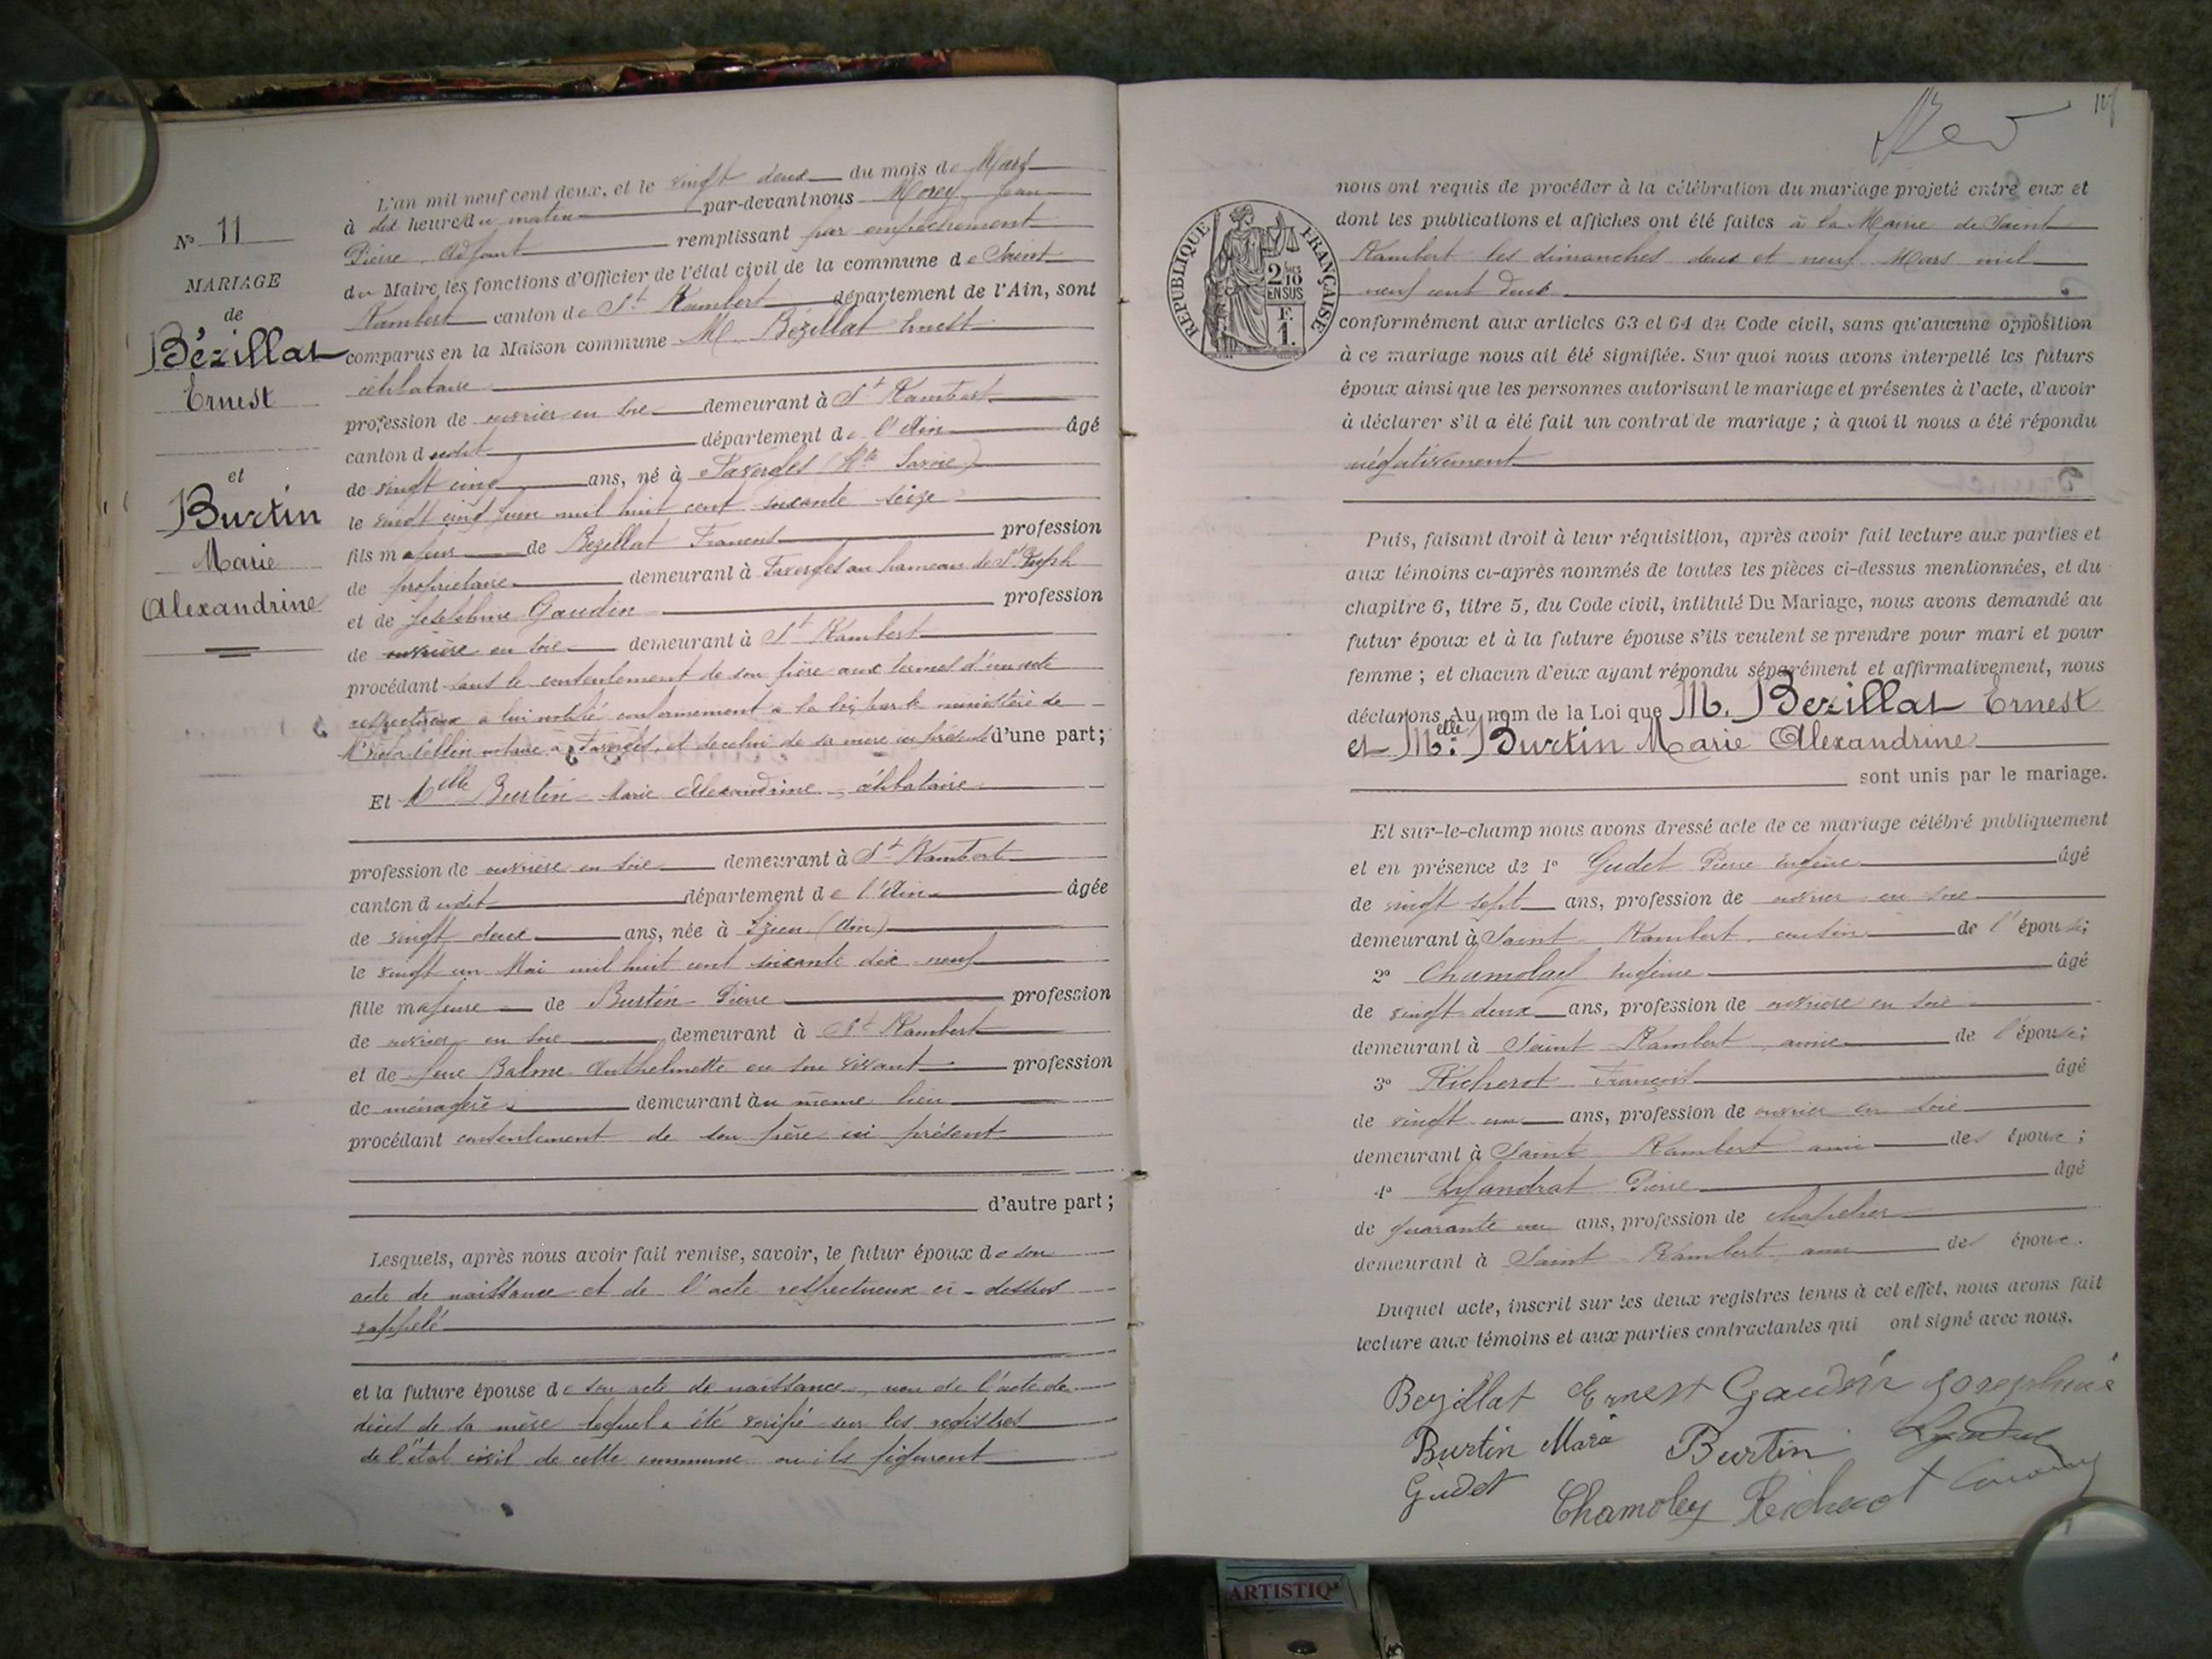 N° 11
MARIAGE
de
Bézillat
Ernest
et
Burtin
Marie
Alexandrine
L'an mil neuf cent deux, et le vingt deux du mois de Mars
à dix heures du matin par-devant nous Morey Jean
Pierre Adjoint remplissant par empêchement
du Maire les fonctions d'Officier de l'état civil de la commune de Saint
Rambert canton de St Rambert département de l'Ain, sont
comparus en la Maison commune M. Bézillat Ernest
célibataire
profession de ouvrier en soie demeurant à St Rambert
canton dudit département de l'Ain âgé
de vingt cinq ans, né à Faverges (Hte Savoie)
le vingt cinq juin mil huit cent soixante seize
fils majeur de Bézillat François profession
de propriétaire demeurant à Faverges au hameau de St
et de Joséphine Gaudin profession
de ouvrière en soie demeurant à St Rambert
procédant sans le consentement de son père aux termes d'un acte
respectueux à lui notifié conformément à la loi par le ministère de
notaire à Faverges, et de celui de sa mère ici présente d'une part;
Et Melle Burtin Marie Alexandrine, célibataire
profession de ouvrière en soie demeurant à St Rambert
canton dudit département de l'Ain âgée
de vingt deux ans, née à Izieu (Ain)
le vingt un Mai mil huit cent soixante dix neuf
fille majeure de Burtin Pierre profession
de ouvrier en soie demeurant à St Rambert
et de feue Balme Anthelmette en son vivant profession
de ménagère demeurant au même lieu
procédant consentement de son père ici présent
d'autre part;
Lesquels, après nous avoir fait remise, savoir, le futur époux de son
acte de naissance et de l'acte respectueux ci-dessus
rappelé
et la future épouse de son acte de naissance, vu de l'acte de
décès de sa mère lequel a été vérifié sur les registres
de l'état civil de cette commune où ils figurent
nous ont requis de procéder à la célébration du mariage projeté entre eux et
dont les publications et affiches ont été faites à la Mairie de Saint
Rambert les dimanches deux et neuf Mars mil
neuf cent deux
RÉPUBLIQUE FRANÇAISE
2/10
EN SUS
F.
1.
conformément aux articles 63 et 64 du Code civil, sans qu'aucune opposition
à ce mariage nous ait été signifiée. Sur quoi nous avons interpellé les futurs
époux ainsi que les personnes autorisant le mariage et présentes à l'acte, d'avoir
à déclarer s'il a été fait un contrat de mariage ; à quoi il nous a été répondu
négativement
Puis, faisant droit à leur réquisition, après avoir fait lecture aux parties et
aux témoins ci-après nommés de toutes les pièces ci-dessus mentionnées, et du
chapitre 6, titre 5, du Code civil, intitulé Du Mariage, nous avons demandé au
futur époux et à la future épouse s'ils veulent se prendre pour mari et pour
femme ; et chacun d'eux ayant répondu séparément et affirmativement, nous
déclarons Au nom de la Loi que M. Bezillat Ernest
et Melle Burtin Marie Alexandrine
sont unis par le mariage.
Et sur-le-champ nous avons dressé acte de ce mariage célébré publiquement
et en présence de 1° Gudet Pierre Eugène âgé
de vingt sept ans, profession de ouvrier en soie
demeurant à Saint Rambert cousin de l'épouse;
2° Chamolay Eugénie âgé
de vingt deux ans, profession de ouvrière en soie
demeurant à Saint Rambert amie de l'épouse;
3° Richerot François âgé
de vingt un ans, profession de ouvrier en soie
demeurant à Saint Rambert ami des époux;
4° Lyandrat Pierre âgé
de quarante un ans, profession de chapelier
demeurant à Saint Rambert ami des époux.
Duquel acte, inscrit sur les deux registres tenus à cet effet, nous avons fait
lecture aux témoins et aux parties contractantes qui ont signé avec nous.
Bezillat Ernest Gaudin Joséphine
Burtin Maria Burtin
Gudet Chamoley Richerot
ARTISTIQ